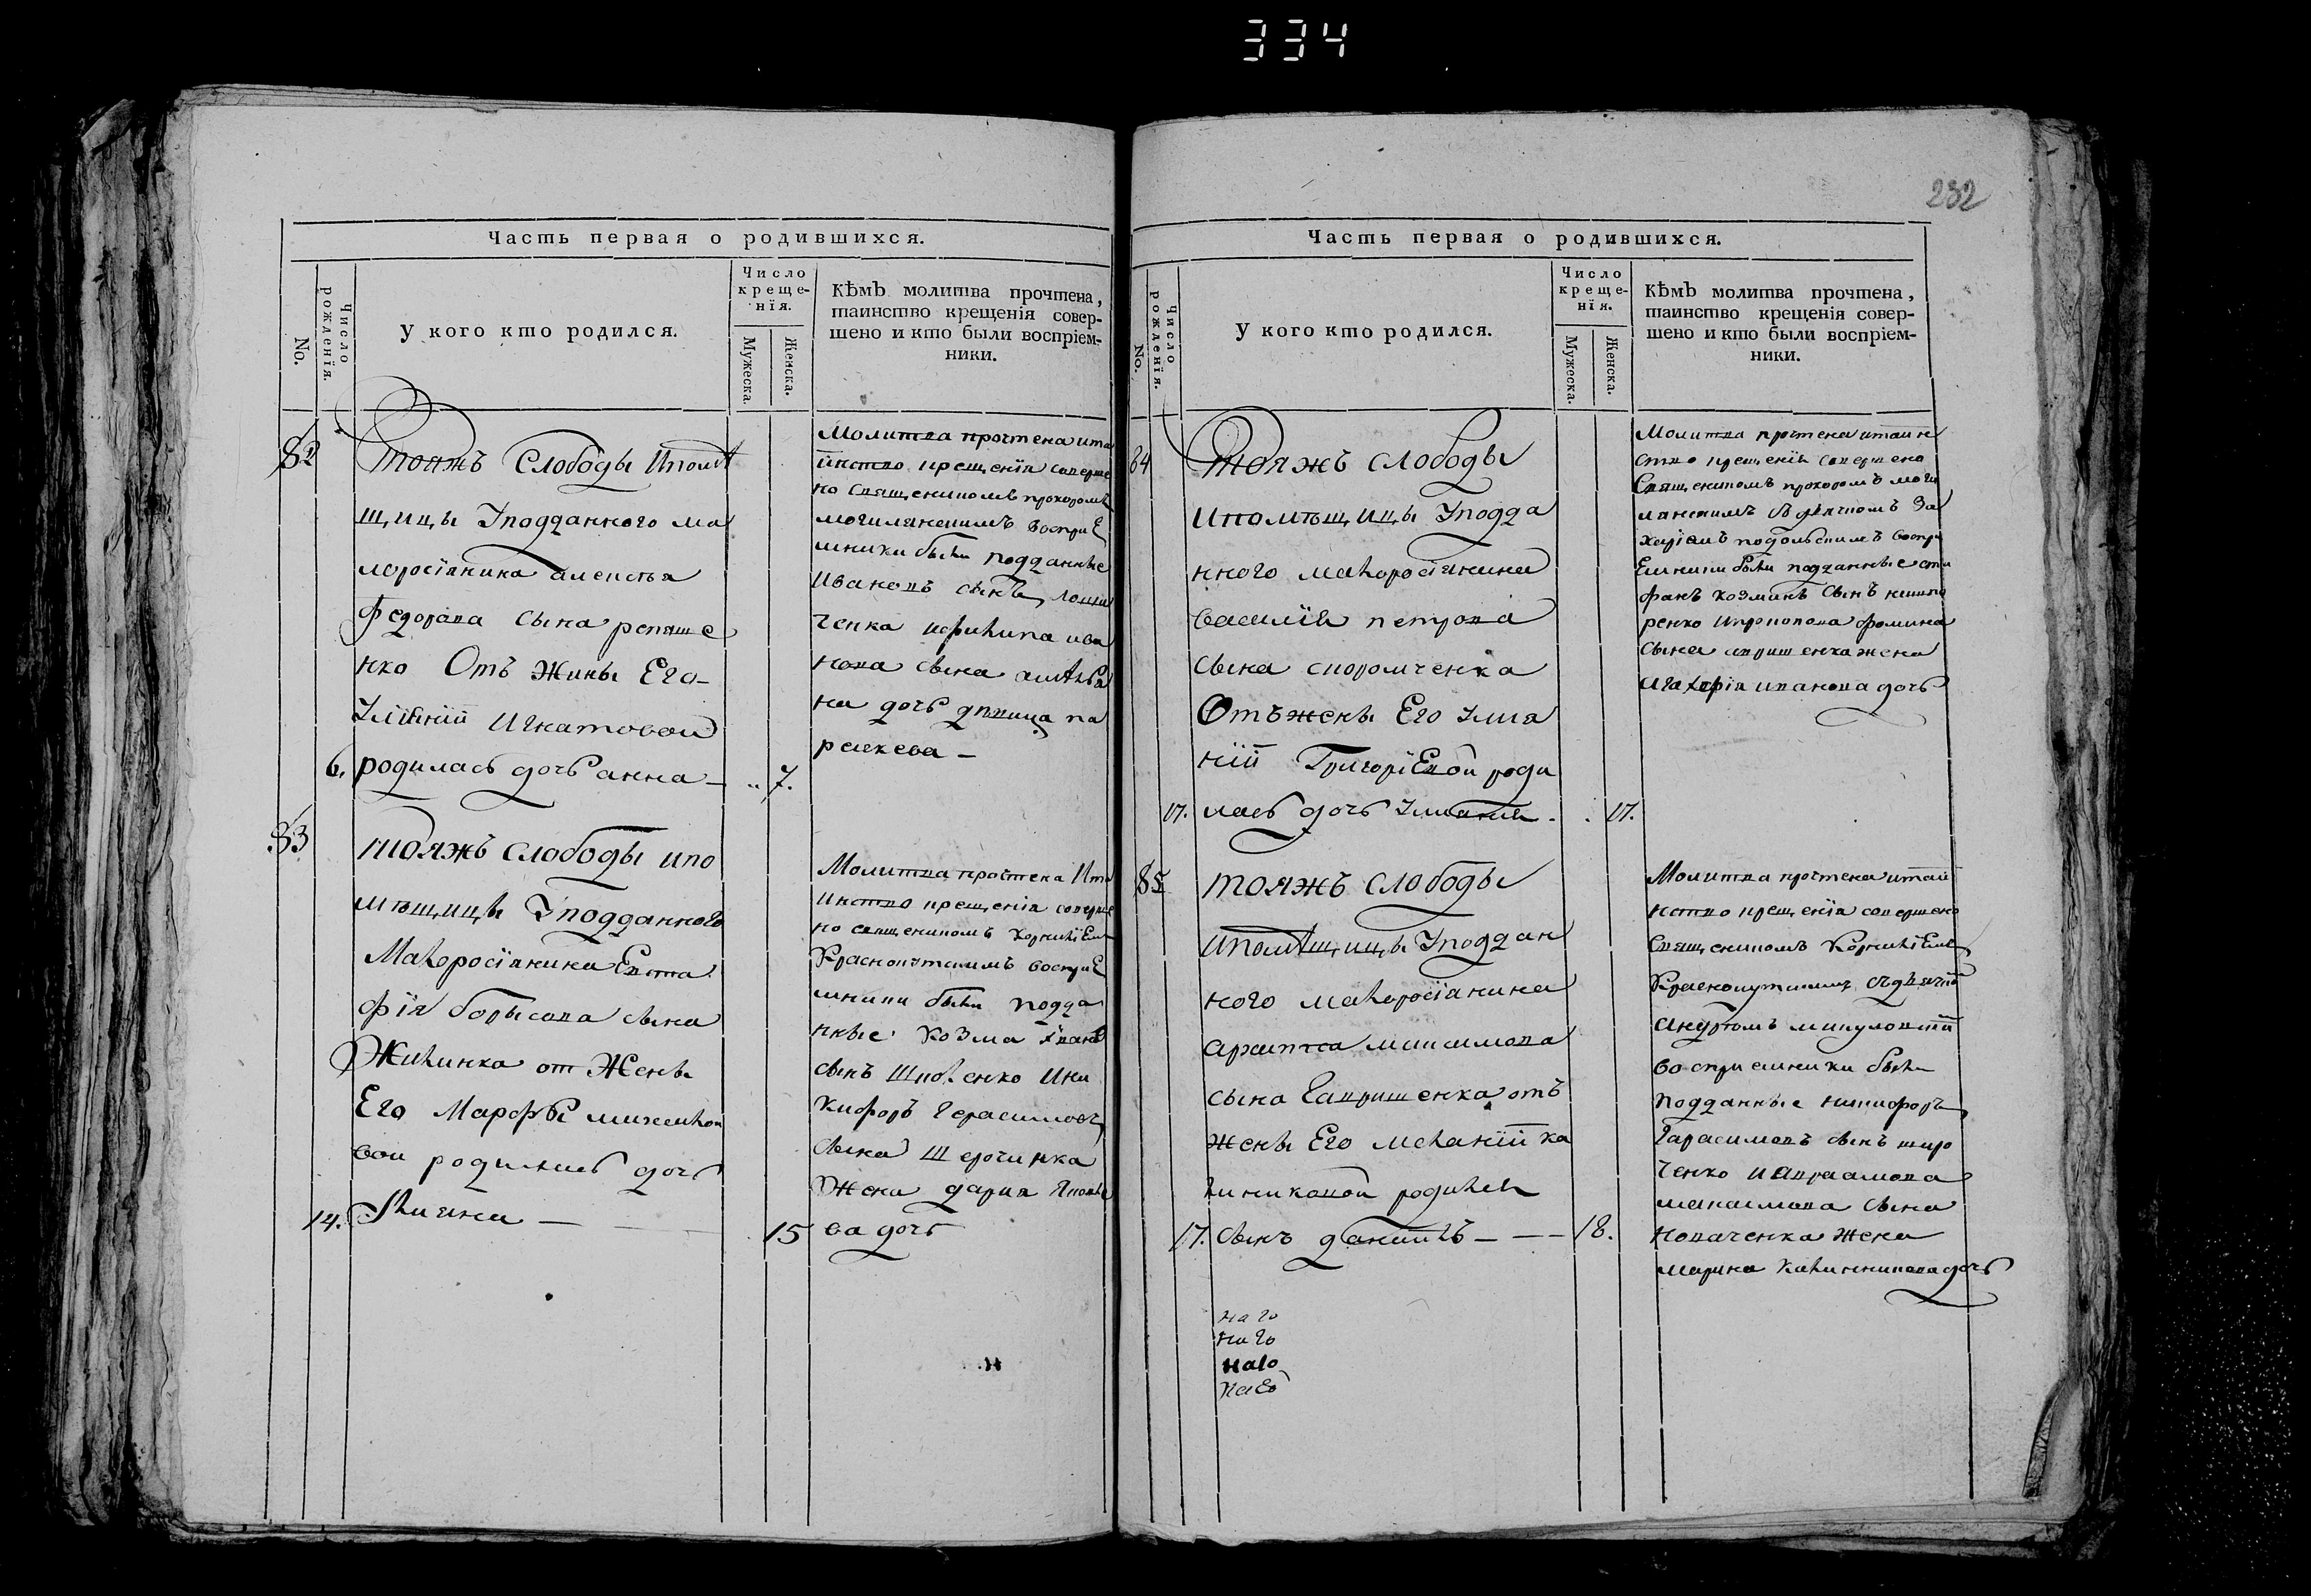 334
232
Часть первая о родившихся.
No.
Число рожденїя.
У кого кто родился.
Число
креще-
нїя.
Мужеска.
Женска.
Кѣмъ молитва прочтена,
таинство крещенія совер-
шено и кто были воспріем-
ники.
82
тояжъ Слободы Ипомѣ
щицы Уподданного ма
лоросїянина алексѣя
Федорова сына
нко Отъ Жины Его
Игнатовои
6. родилась дочь анна — 7.
Молитва прочтена ита
инство крещенїя соверше
но Священикомъ прохоромъ
могилянскимъ воспріЕ
мники были подданные
Ивановъ сынъ
ченка ива
нова сына
на дочь девица па
раскева —
83
тояжъ слободы ипо
мѣщицы Уподданного
Малоросїянина Евста
фїя борысова сына
Жилинка от Жены
Его Марфы
вои родилась дочь
14. — 15
Молитва прочтена Ита
инство крещенїя соверше
но священикомъ КорнилїЕмъ
Краснокутскимъ воспріЕ
мники были подда
нные Козма
сынъ Ини
кифоръ Герасимовъ
сына
Жена дария
ва дочь
Часть первая о родившихся.
No.
Число рожденїя.
У кого кто родился.
Число
креще-
нїя.
Мужеска.
Женска.
Кѣмъ молитва прочтена,
таинство крещенія совер-
шено и кто были воспріем-
ники.
84
тояжъ слободы
ипомѣщицы Уподда
нного малоросїянина
василїя петрова
сына скоромченка
Отъ жены Его Улия
нїи ГригорїЕвой роди
17. лась дочь Улияния 17.
Молитва прочтена итаин
ство крещенїя совершено
Священикомъ прохоромъ моги
лянскимъ дьячкомъ За
харїемъ подольскимъ воспри
Емники были подданные сти
фанъ козминъ сынъ
ренко Ипрокопова фомина
сына жена
иванова дочь
85
тояжъ слободы
ипомѣщицы Уподдан
ного малоросїянина
максимова
сына Гавришенка отъ
жены Его меланїи ка
линиковой родился
17. сынъ данїилъ — — — 18.
Молитва прочтена итаи
нство крещенїя совершено
Священикомъ КорнилїЕмъ
Краснокутскимъ
воспри емники были
подданные никифоръ
Гарасимовъ сынъ
ченко иавраамова
максимова сына
коваченка жена
марина калинникова дочь
наго
наго
наго